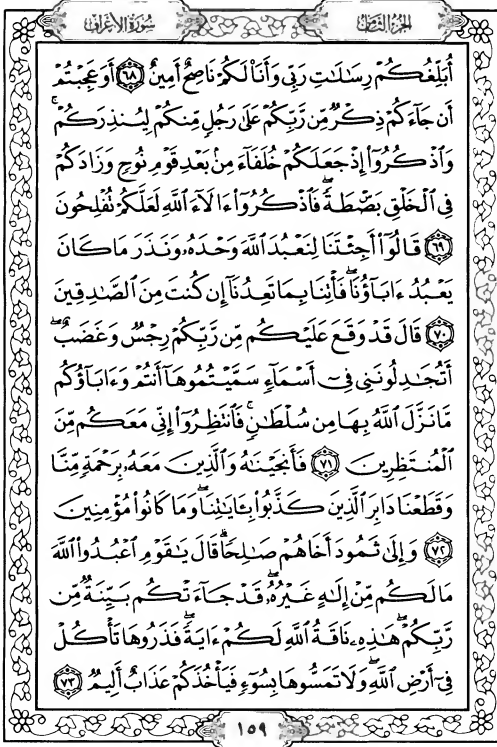 سُورَةُ الأَعْرَافِ
الجُزْءُ الثَّامِنُ
أُبَلِّغُكُمْ رِسَٰلَٰتِ رَبِّي وَأَنَا۠ لَكُمْ نَاصِحٌ أَمِينٌ ٦٨ أَوَعَجِبْتُمْ
أَن جَآءَكُمْ ذِكْرٌ مِّن رَّبِّكُمْ عَلَىٰ رَجُلٍ مِّنكُمْ لِيُنذِرَكُمْ ۚ
وَٱذْكُرُوٓا۟ إِذْ جَعَلَكُمْ خُلَفَآءَ مِنۢ بَعْدِ قَوْمِ نُوحٍ وَزَادَكُمْ
فِى ٱلْخَلْقِ بَصْۜطَةً ۖ فَٱذْكُرُوٓا۟ ءَالَآءَ ٱللَّهِ لَعَلَّكُمْ تُفْلِحُونَ
٦٩ قَالُوٓا۟ أَجِئْتَنَا لِنَعْبُدَ ٱللَّهَ وَحْدَهُۥ وَنَذَرَ مَا كَانَ
يَعْبُدُ ءَابَآؤُنَا ۖ فَأْتِنَا بِمَا تَعِدُنَآ إِن كُنتَ مِنَ ٱلصَّٰدِقِينَ
٧٠ قَالَ قَدْ وَقَعَ عَلَيْكُم مِّن رَّبِّكُمْ رِجْسٌ وَغَضَبٌ ۖ
أَتُجَٰدِلُونَنِى فِىٓ أَسْمَآءٍ سَمَّيْتُمُوهَآ أَنتُمْ وَءَابَآؤُكُم
مَّا نَزَّلَ ٱللَّهُ بِهَا مِن سُلْطَٰنٍ ۚ فَٱنتَظِرُوٓا۟ إِنِّى مَعَكُم مِّنَ
ٱلْمُنتَظِرِينَ ٧١ فَأَنجَيْنَٰهُ وَٱلَّذِينَ مَعَهُۥ بِرَحْمَةٍ مِّنَّا
وَقَطَعْنَا دَابِرَ ٱلَّذِينَ كَذَّبُوا۟ بِـَٔايَٰتِنَا ۖ وَمَا كَانُوا۟ مُؤْمِنِينَ
٧٢ وَإِلَىٰ ثَمُودَ أَخَاهُمْ صَٰلِحًا ۗ قَالَ يَٰقَوْمِ ٱعْبُدُوا۟ ٱللَّهَ
مَا لَكُم مِّنْ إِلَٰهٍ غَيْرُهُۥ ۖ قَدْ جَآءَتْكُم بَيِّنَةٌ مِّن
رَّبِّكُمْ ۖ هَٰذِهِۦ نَاقَةُ ٱللَّهِ لَكُمْ ءَايَةً ۖ فَذَرُوهَا تَأْكُلْ
فِىٓ أَرْضِ ٱللَّهِ ۖ وَلَا تَمَسُّوهَا بِسُوٓءٍ فَيَأْخُذَكُمْ عَذَابٌ أَلِيمٌ ٧٣
١٥٩